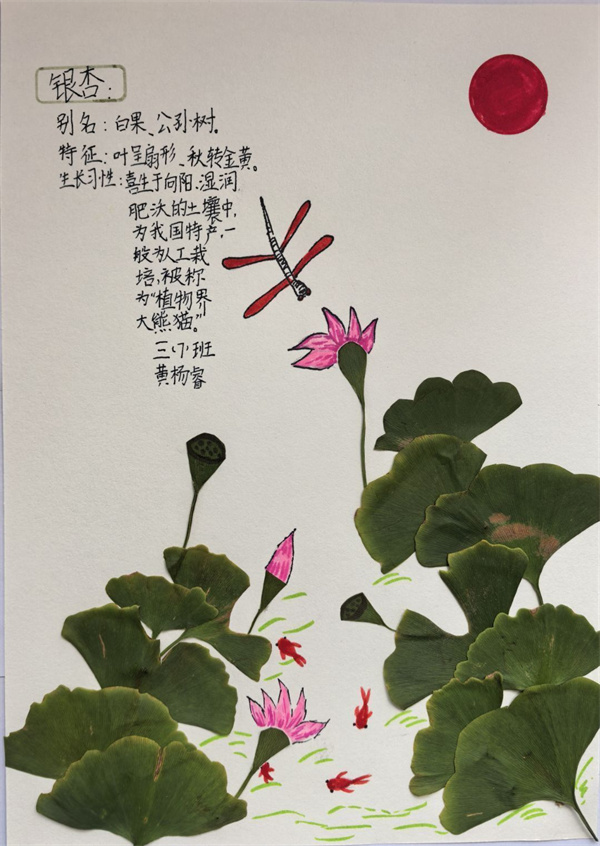 银杏：
别名：白果、公孙树。
特征：叶呈扇形、秋转金黄。
生长习性：喜生于向阳、湿润
肥沃的土壤中，
为我国特产，一
般为人工栽
培，被称
为“植物界
大熊猫。”
三（7）班
黄杨睿